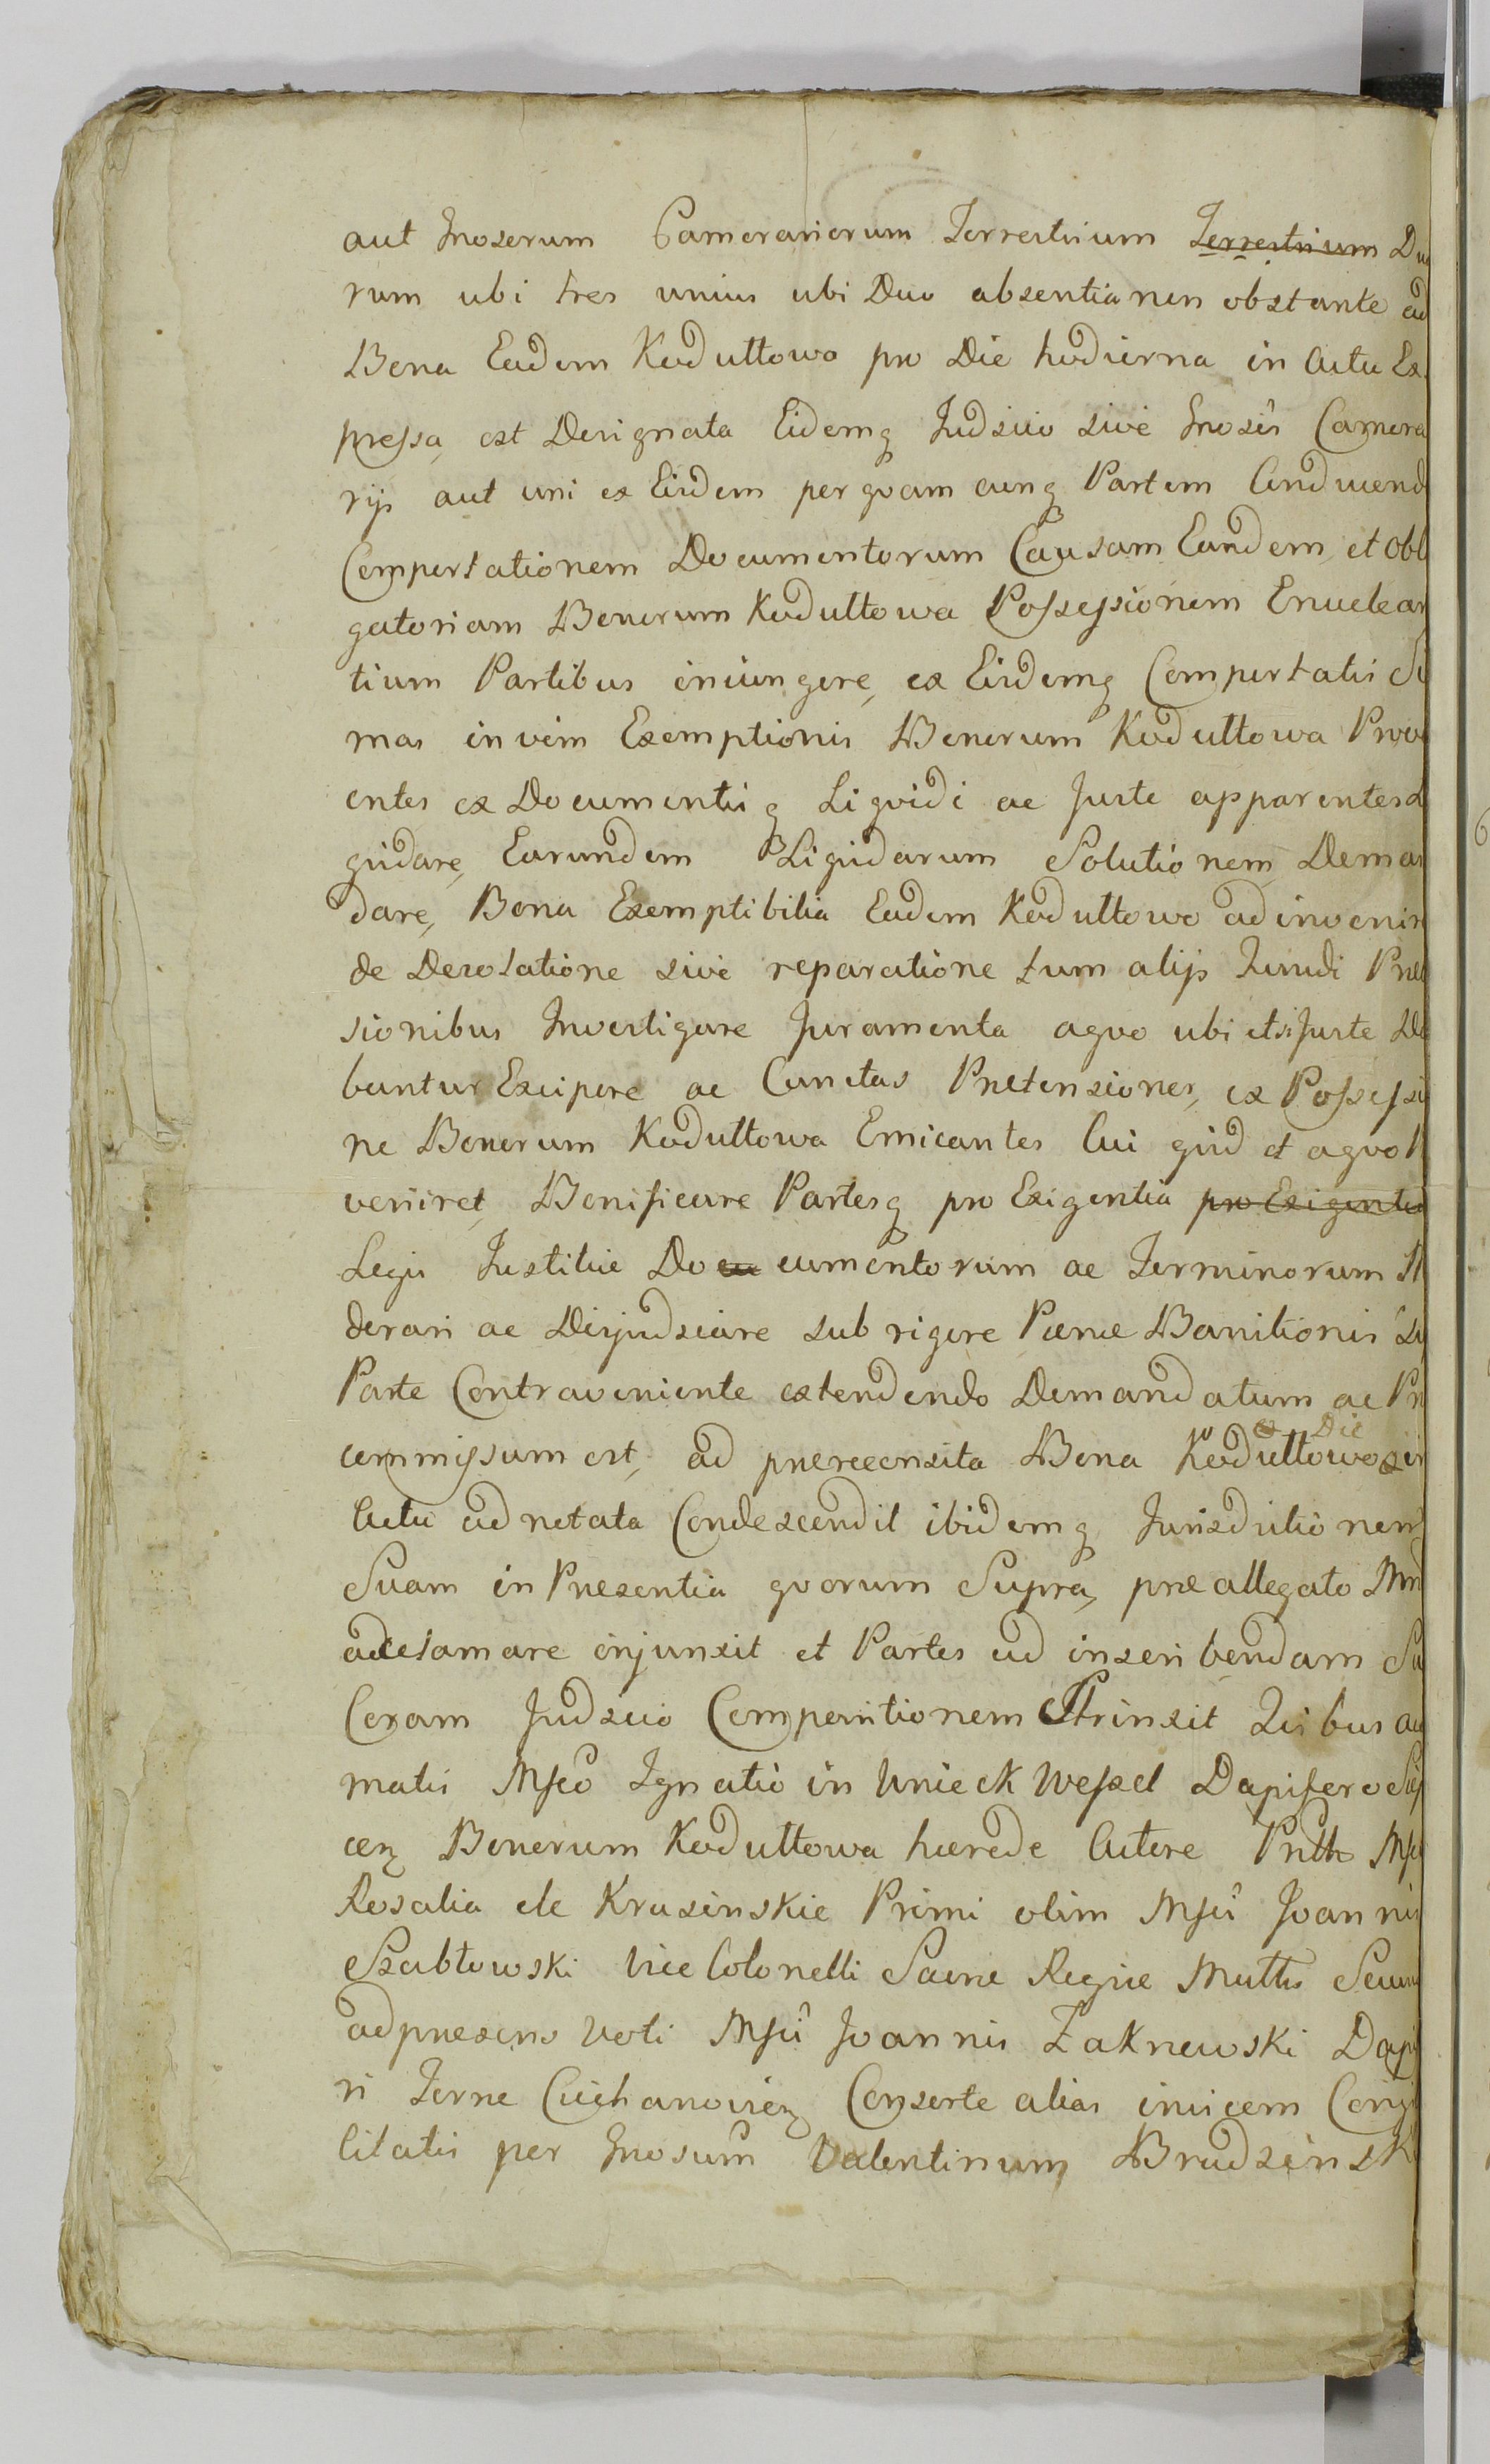 aut Gnoserum Camerariorum Terrestrium Terrestrium Du
rum ubi tres unius ubi Duo absentia non obstante ad
Bona Eadem Koduttowo pro Die hodierna in Actu Ex
pressa est Designata Eidemq Judicio sive Gnosis Camera
rijs aut uni ex Eisdem per qvam cunq Partem Conducend
Comportationem Documentorum Causam Eandem et obli
gatoriam Bonorum Koduttowa Possessionem Enuclean
tium Partibus iniungere, ex Eisdemq Comportatis Su
mas in vim Exemptionis Bonorum Koduttowa Prov
entes ex Documentisq Liqvidi ac Juste apparentes Li
qvidare, Earundem Liqvidarum Solutionem Deman
dare, Bona Exemptibilia Eadem Koduttowo adinvenire
de Desolatione sive reparatione tum alijs
sionibus Investigare Juramenta aqvo ubi etsi Juste De
buntur Excipere ac Cunctas Prætensiones, ex Possessio
ne Bonorum Koduttowa Emicantes Cui qvid et aqvo
veniret, Bonificare Partesq pro Exigentia pro Exigentia
Legis Justitiæ Docu cumentorum ac Terminorum
derari ac Disjudicare sub rigore Pænæ Banitionis su
Parte Contraveniente extendendo Demandatum ac Præ
commissum est, ad prærecensita Bona Koduttowo ex Die in
Actu adnotata Condescendit ibidemq Jurisdictionem
Suam in Præsentia qvorum Supra, præallegato Min
adclamare injunxit et Partes ad inscribendam Su
Coram Judicio Comparitionem Strinxit Qvibus
matis Mfco Ignatio in Unieck Wessel Dapifero
cen Bonorum Koduttowa hærede Actore
Rosalia de Krasinskie Primi olim Mfci Joannis
Szabłowski Vice Colonelli Sacræ Regiæ Mattis Secun
ad præsens Voti Mfci Joannis Zakrzewski Dapif
ri Terræ Ciechanovien Consorte alias invicem
litatis per Gnosum Valentinum Brudzinski